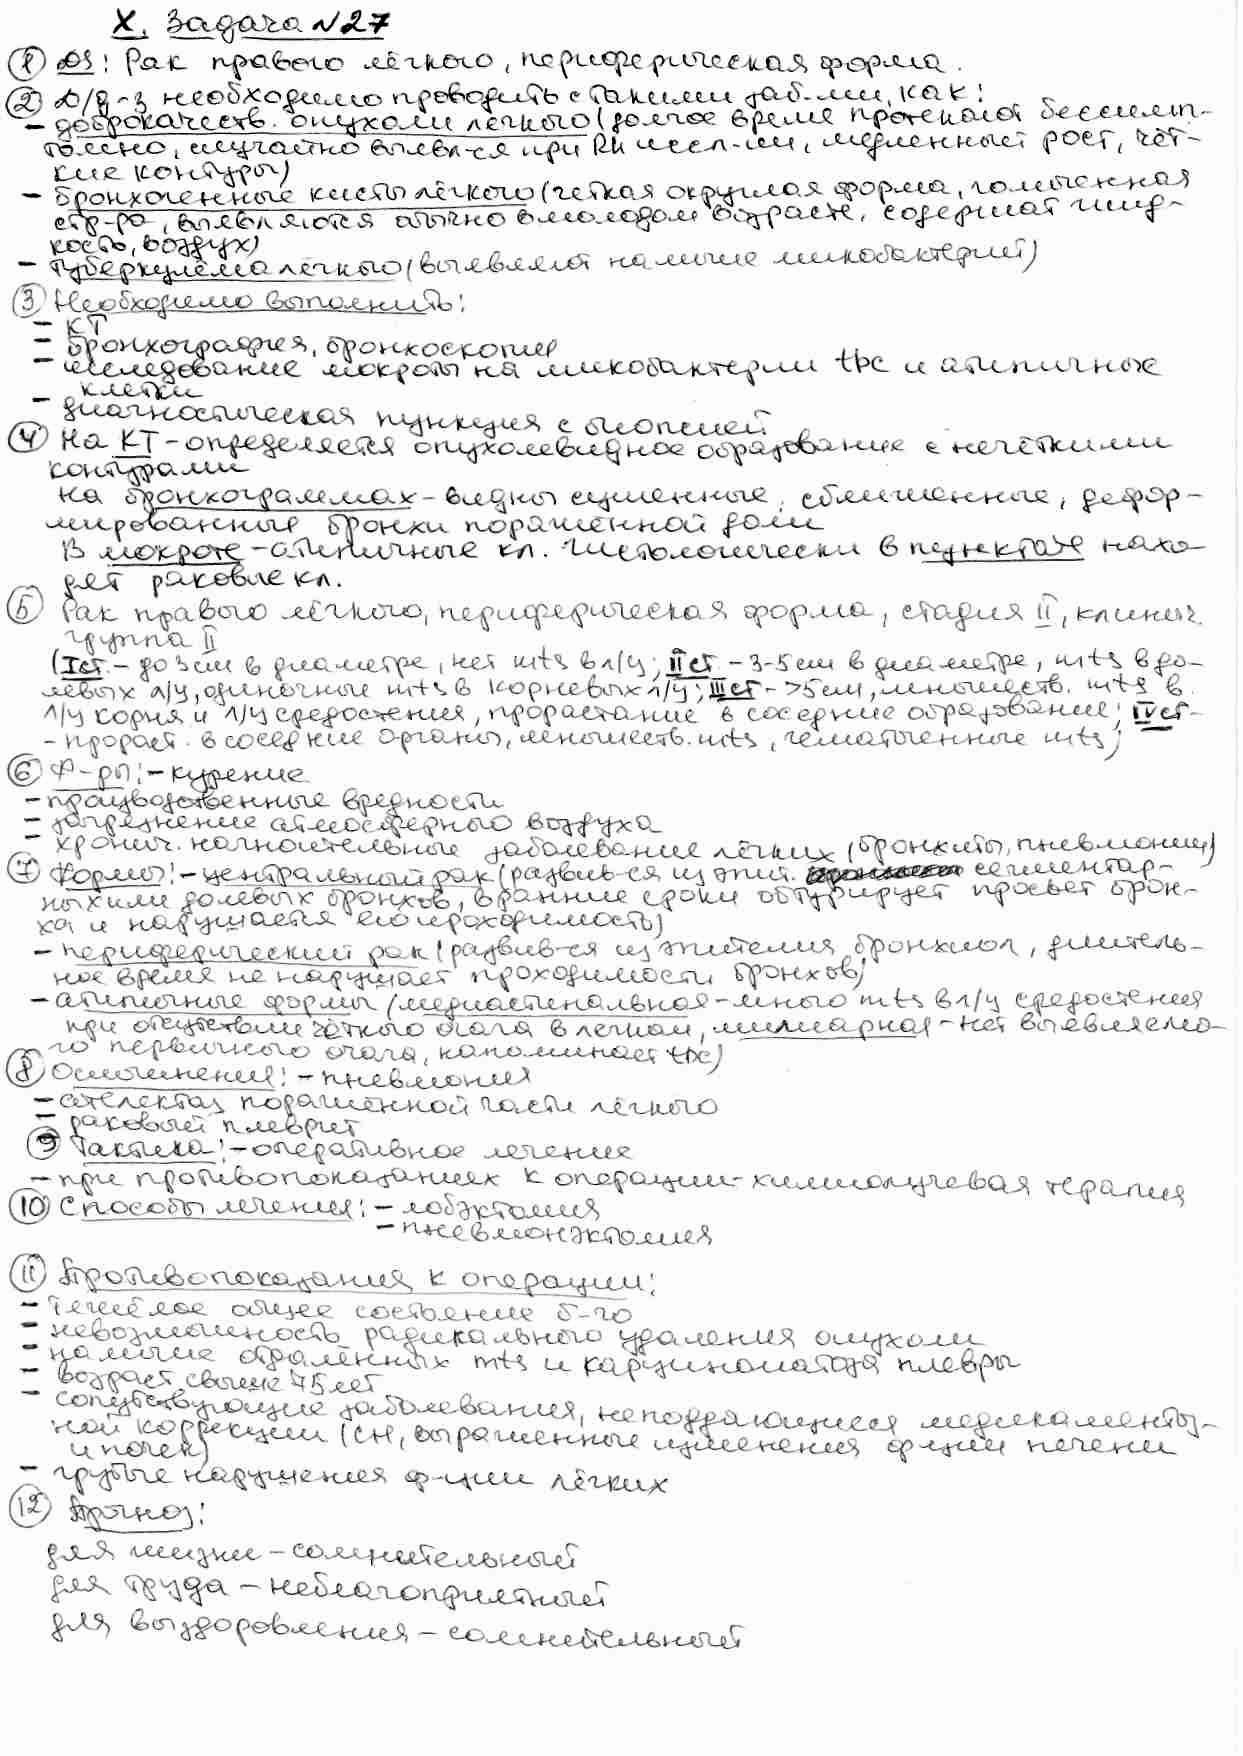 X. Задача №27
① DS: Рак правого лёгкого, периферическая форма.
② Д/д-з необходимо проводить с такими заб-ми, как:
- доброкачеств. опухоли лёгкого (долгое время протекают бессимп-
томно, случайно выявл-ся при Rh иссл-ии, медленный рост, чёт-
кие контуры)
- бронхогенные кисты лёгкого (четкая округлая форма, гомогенная
стр-ра, выявляются обычно в молодом возрасте, содержат жид-
кость, воздух)
- туберкулёма лёгкого (выявляют наличие микобактерий)
③ Необходимо выполнить:
- КТ
- бронхография, бронхоскопия
- исследование мокроты на микобактерии tbc и атипичные
клетки
- диагностическая пункция с биопсией
④ На КТ - определяется опухолевидное образование с нечёткими
контурами
на бронхограммах - видны суженные, сближенные, дефор-
мированные бронхи поражённой доли
В мокроте - атипичные кл. Гистологически в пунктате нахо-
дят раковые кл.
⑤ Рак правого лёгкого, периферическая форма, стадия II, клинич.
группа II
(I ст. - до 3 см в диаметре, нет mts в л/у; II ст. - 3-5 см в диаметре, mts в до-
левых л/у, одиночные mts в корневых л/у; III ст - >5 см, множеств. mts в
л/у корня и л/у средостения, прорастание в соседние образования; IV ст-
- прораст. в соседние органы, множеств. mts, гематогенные mts)
⑥ Ф-ры: - курение
- производственные вредности
- загрязнение атмосферного воздуха
- хронич. нагноительные заболевание лёгких (бронхиты, пневмонии)
⑦ Формы: - центральный рак (развив-ся из эпит. сегментар-
ных или долевых бронхов, в ранние сроки обтурирует просвет брон-
ха и нарушается его проходимость)
- периферический рак (развив-ся из эпителия бронхиол, длитель-
ное время не нарушает проходимости бронхов)
- атипичные формы (медиастинальная - много mts в л/у средостения
при отсутствии чёткого очага в легком, милиарная - нет выявляемо-
го первичного очага, напоминает tbc)
⑧ Осложнения: - пневмония
- ателектаз поражённой части лёгкого
- раковый плеврит
⑨ Тактика: - оперативное лечение
- при противопоказаниях к операции - химиолучевая терапия
⑩ Способы лечения: - лобэктомия
- пневмонэктомия
⑪ Противопоказания к операции:
- тяжёлое общее состояние б-го
- невозможность радикального удаления опухоли
- наличие отдалённых mts и карциноматоза плевры
- возраст свыше 75 лет
- сопутствующие заболевания, неподдающиеся медикаментоз-
ной коррекции (СН, выраженные изменения ф-ции печени
и почек)
- грубые нарушения ф-ции лёгких
⑫ Прогноз:
для жизни - сомнительный
для труда - неблагоприятный
для выздоровления - сомнительный